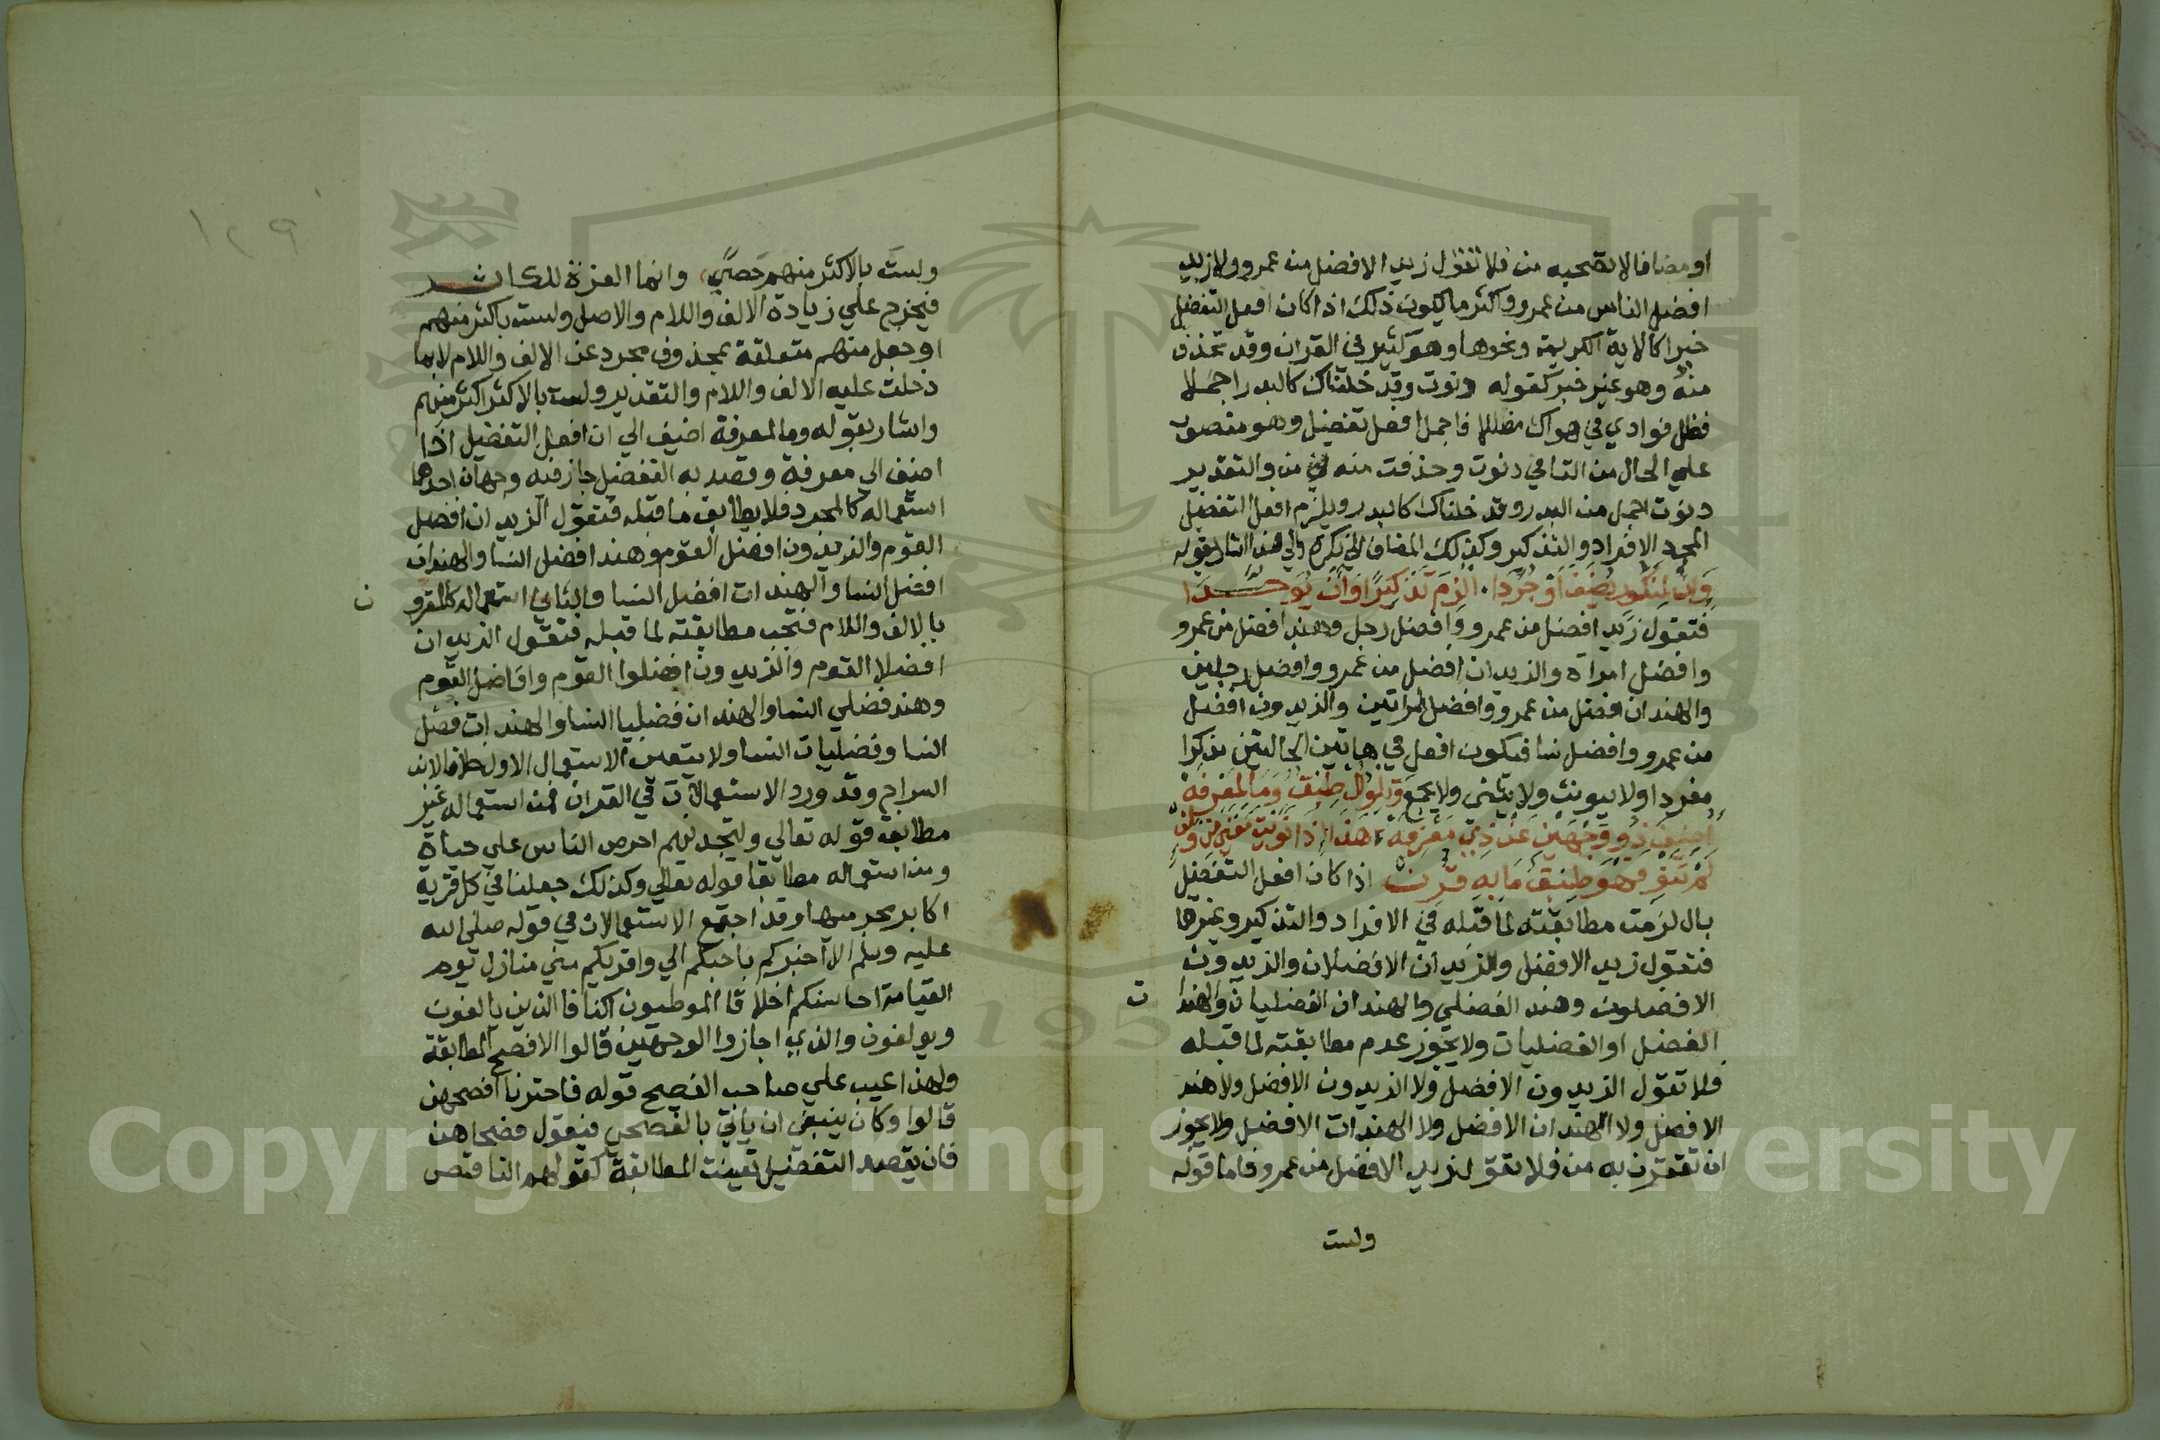 او مضافا لا تصحبه من فلا تقول زيد الافضل من عمرو ولا زيد
افضل الناس من عمرو واكثر ما يكون ذلك اذا كان افعل التفضيل
خبرا كالاية الكريمة ونحوها وهو كثير في القران وقد تحذف
منه وهو غير خبر كقوله دنوت وقد خلناك كالبدر اجملا
فظل فوادي في هواك مضللا فاجمل افعل تفضيل وهو منصوب
علي الحال من التا في دنوت وحذفت منه من والتقدير
دنوت اجمل من البدر وقد خلناك كالبدر ويلزم افعل التفضيل
المجرد الافراد والتذكير وكذلك المضاف الي نكرة والي هذا اشار بقوله
وَان لمنكور يُضَف اَوْ جُرّدَا الزِمَ تَذكِيرًا وَاَنْ يُوَحَّدَا
فتقول زيد افضل من عمرو وافضل رجل وهند افضل من عمرو
وافضل امراة والزيدان افضل من عمرو وافضل رجلين
والهندان افضل من عمرو وافضل امراتين والزيدون افضل
من عمرو وافضل نسا فيكون افعل في هاتين الحالتين مذكرا
مفردا ولا يونث ولا يثني ولا يجمع وَتِلوُ ال طِبْقٌ وَمَا لِمَعْرِفَهْ
اُضِيفَ ذُو وَجْهَيْنِ عَنْ ذِي مَعْرِفَهْ هَذَا اِذَا نَوَيْتَ مَعْنَى مِنْ وَاِنْ
لَمْ تَنْوِ فَهْوَ طِبْقُ مَا بِهِ قُرِنْ اذا كان افعل التفضيل
بال لزمت مطابقته لما قبله في الافراد والتذكير وغيرها
فتقول زيد الافضل والزيدان الافضلان والزيدون
الافضلون وهند الفضلي والهندان الفضليان والهندا
ت
الفضل او الفضليات ولا يجوز عدم مطابقته لما قبله
فلا تقول الزيدون الافضل ولا الزيدون الافضل ولا هند
الافضل ولا الهندان الافضل ولا الهندات الافضل ولا يجوز
ان تقترن به من فلا تقول زيد الافضل من عمرو فاما قوله
ولست
١٢٩
ولست بالاكثر منهم حصي وانما العزة للكاثر
فيخرج علي زيادة الالف واللام والاصل ولست باكثر منهم
او جعل منهم متعلقة بمحذوف مجرد عن الالف واللام لا بما
دخلت عليه الالف واللام والتقدير ولست بالاكثر اكثر منهم
واشار بقوله وما لمعرفة اضيف الي ان افعل التفضيل اذا
اضيف الي معرفة وقصد به التفضيل جاز فيه وجهان احدهما
استعماله كالمجرد فلا يطابق ما قبله فتقول الزيدان افضل
القوم والزيدون افضل القوم وهند افضل النسا والهندان
افضل النسا والهندات افضل النسا والثاني استعماله كالمقرو
ن
بالالف واللام فتجب مطابقته لما قبله فتقول الزيدان
افضلا القوم والزيدون افضلوا القوم وافاضل القوم
وهند فضلي النسا والهندان فضليا النسا والهندات فضل
النسا وفضليات النسا ولا يتعين الاستعمال الاول خلافا لابن
السراج وقد ورد الاستعمالان في القران فمن استعماله غير
مطابق قوله تعالي ولتجدنهم احرص الناس علي حياة
ومن استعماله مطابقا قوله تعالي وكذلك جعلنا في كل قرية
اكابر مجرميها وقد اجتمع الاستعمالان في قوله صلي الله
عليه وسلم الا اخبركم باحبكم الي واقربكم مني منازل يوم
القيامة احاسنكم اخلاقا الموطيون اكنافا الذين يالفون
ويولفون والذي اجازوا الوجهين قالوا الافصح المطابقة
ولهذا عيب علي صاحب الفصيح قوله فاخترنا افصحهن
قالوا وكان ينبغي ان ياتي بالفصحي فيقول فصحاهن
فان يقصد التفضيل تعينت المطابقة كقولهم الناقص
Copyright © King Saud University
195